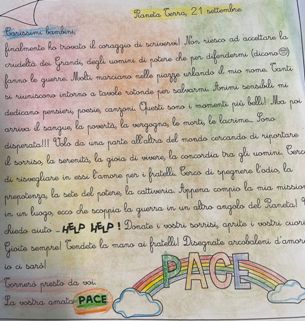 Pianeta Terra, 21 settembre
Carissimi bambini,
finalmente ho trovato il coraggio di scrivere! Non riesco ad accettare la
crudeltà dei Grandi, degli uomini di potere che per difendermi (dicono☹)
fanno le guerre. Molti marciano nelle piazze urlando il mio nome. Tanti
si riuniscono intorno a tavole rotonde per salvarmi. Animi sensibili mi
dedicano pensieri, poesie, canzoni. Questi sono i momenti più belli! Ma poi
arriva il sangue, la povertà, la vergogna, le morti, le lacrime... Sono
disperata!!! Volo da una parte all'altra del mondo cercando di riportare
il sorriso, la serenità, la gioia di vivere, la concordia tra gli uomini. Cerco
di risvegliare in essi l'amore per i fratelli. Cerco di spegnere l'odio, la
prepotenza, la sete del potere, la cattiveria. Appena compio la mia missione
in un luogo, ecco che scoppia la guerra in un altro angolo del Pianeta!
chiedo aiuto ... HELP HELP! Donate i vostri sorrisi, aprite i vostri cuori
Gioite sempre! Tendete la mano ai fratelli! Disegnate arcobaleni d'amore
io ci sarò!
Tornerò presto da voi.
La vostra amata PACE
PACE